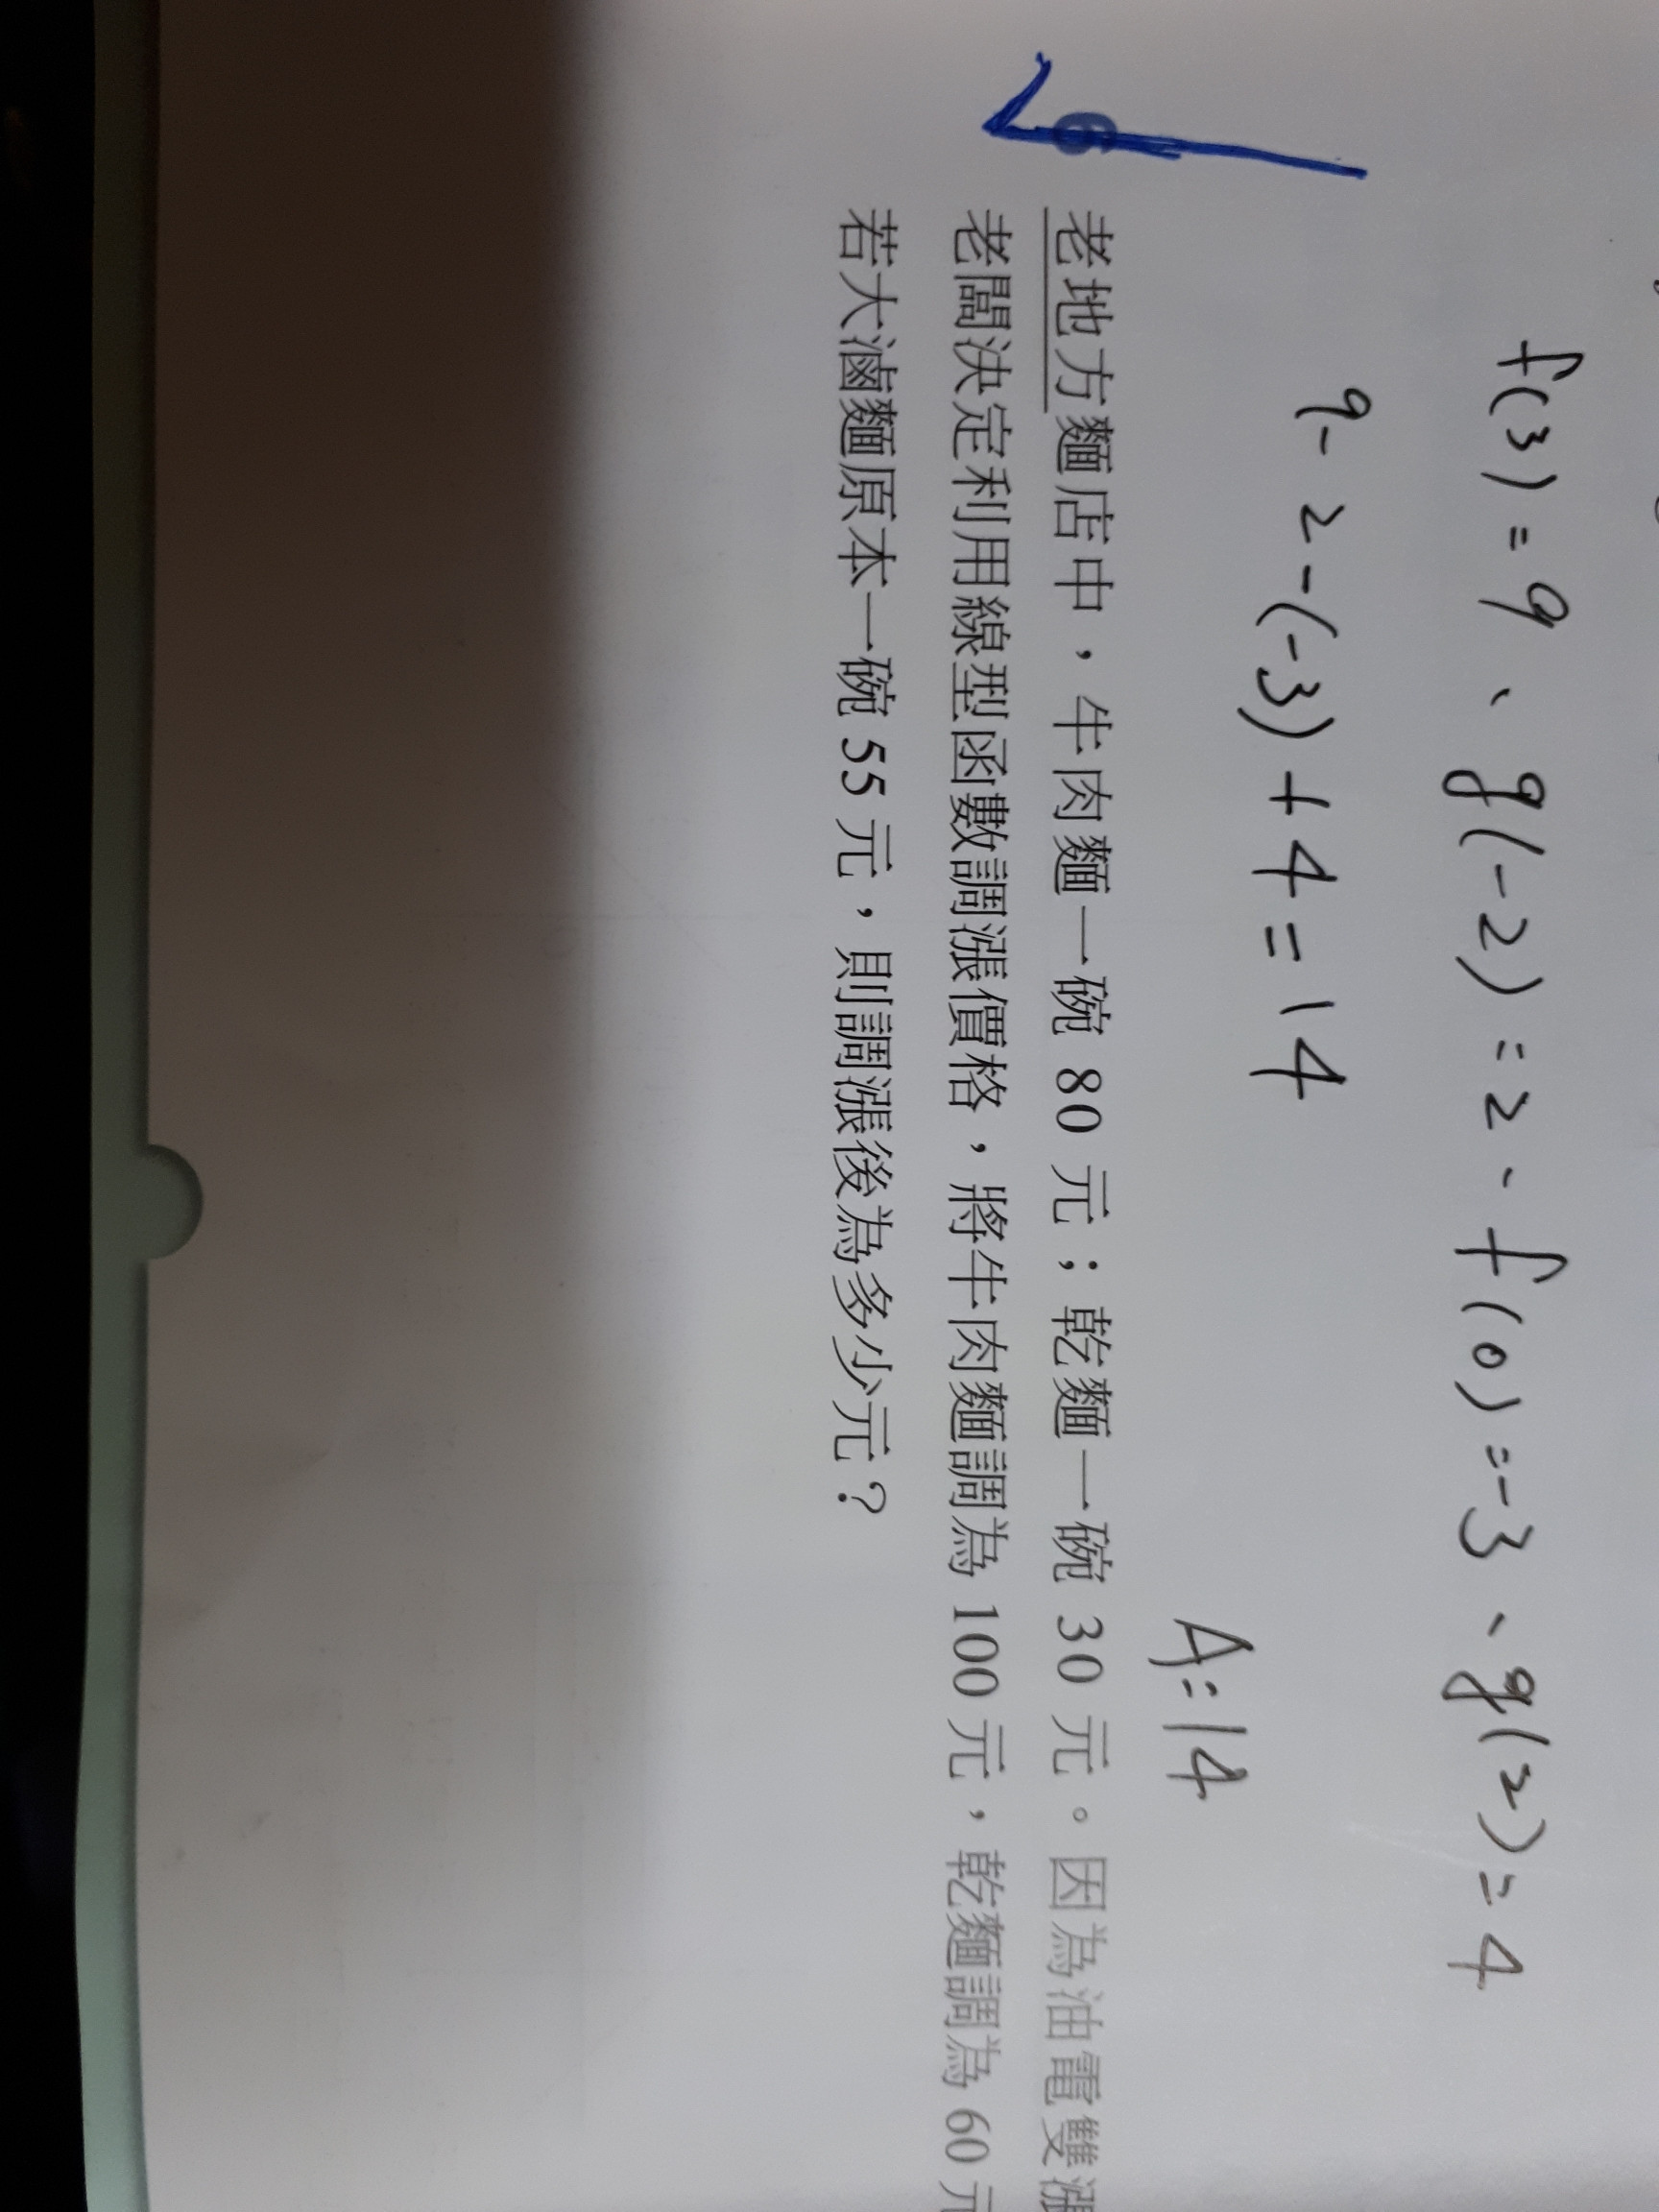 f(3)=9、g(-2)=2、f(0)=-3、g(2)=4
9-2-(-3)+4=14
A=14
6 老地方麵店中，牛肉麵一碗 80 元；乾麵一碗 30 元。因為油電雙漲
老闆決定利用線型函數調漲價格，將牛肉麵調為 100 元，乾麵調為 60 元
若大滷麵原本一碗 55 元，則調漲後為多少元？